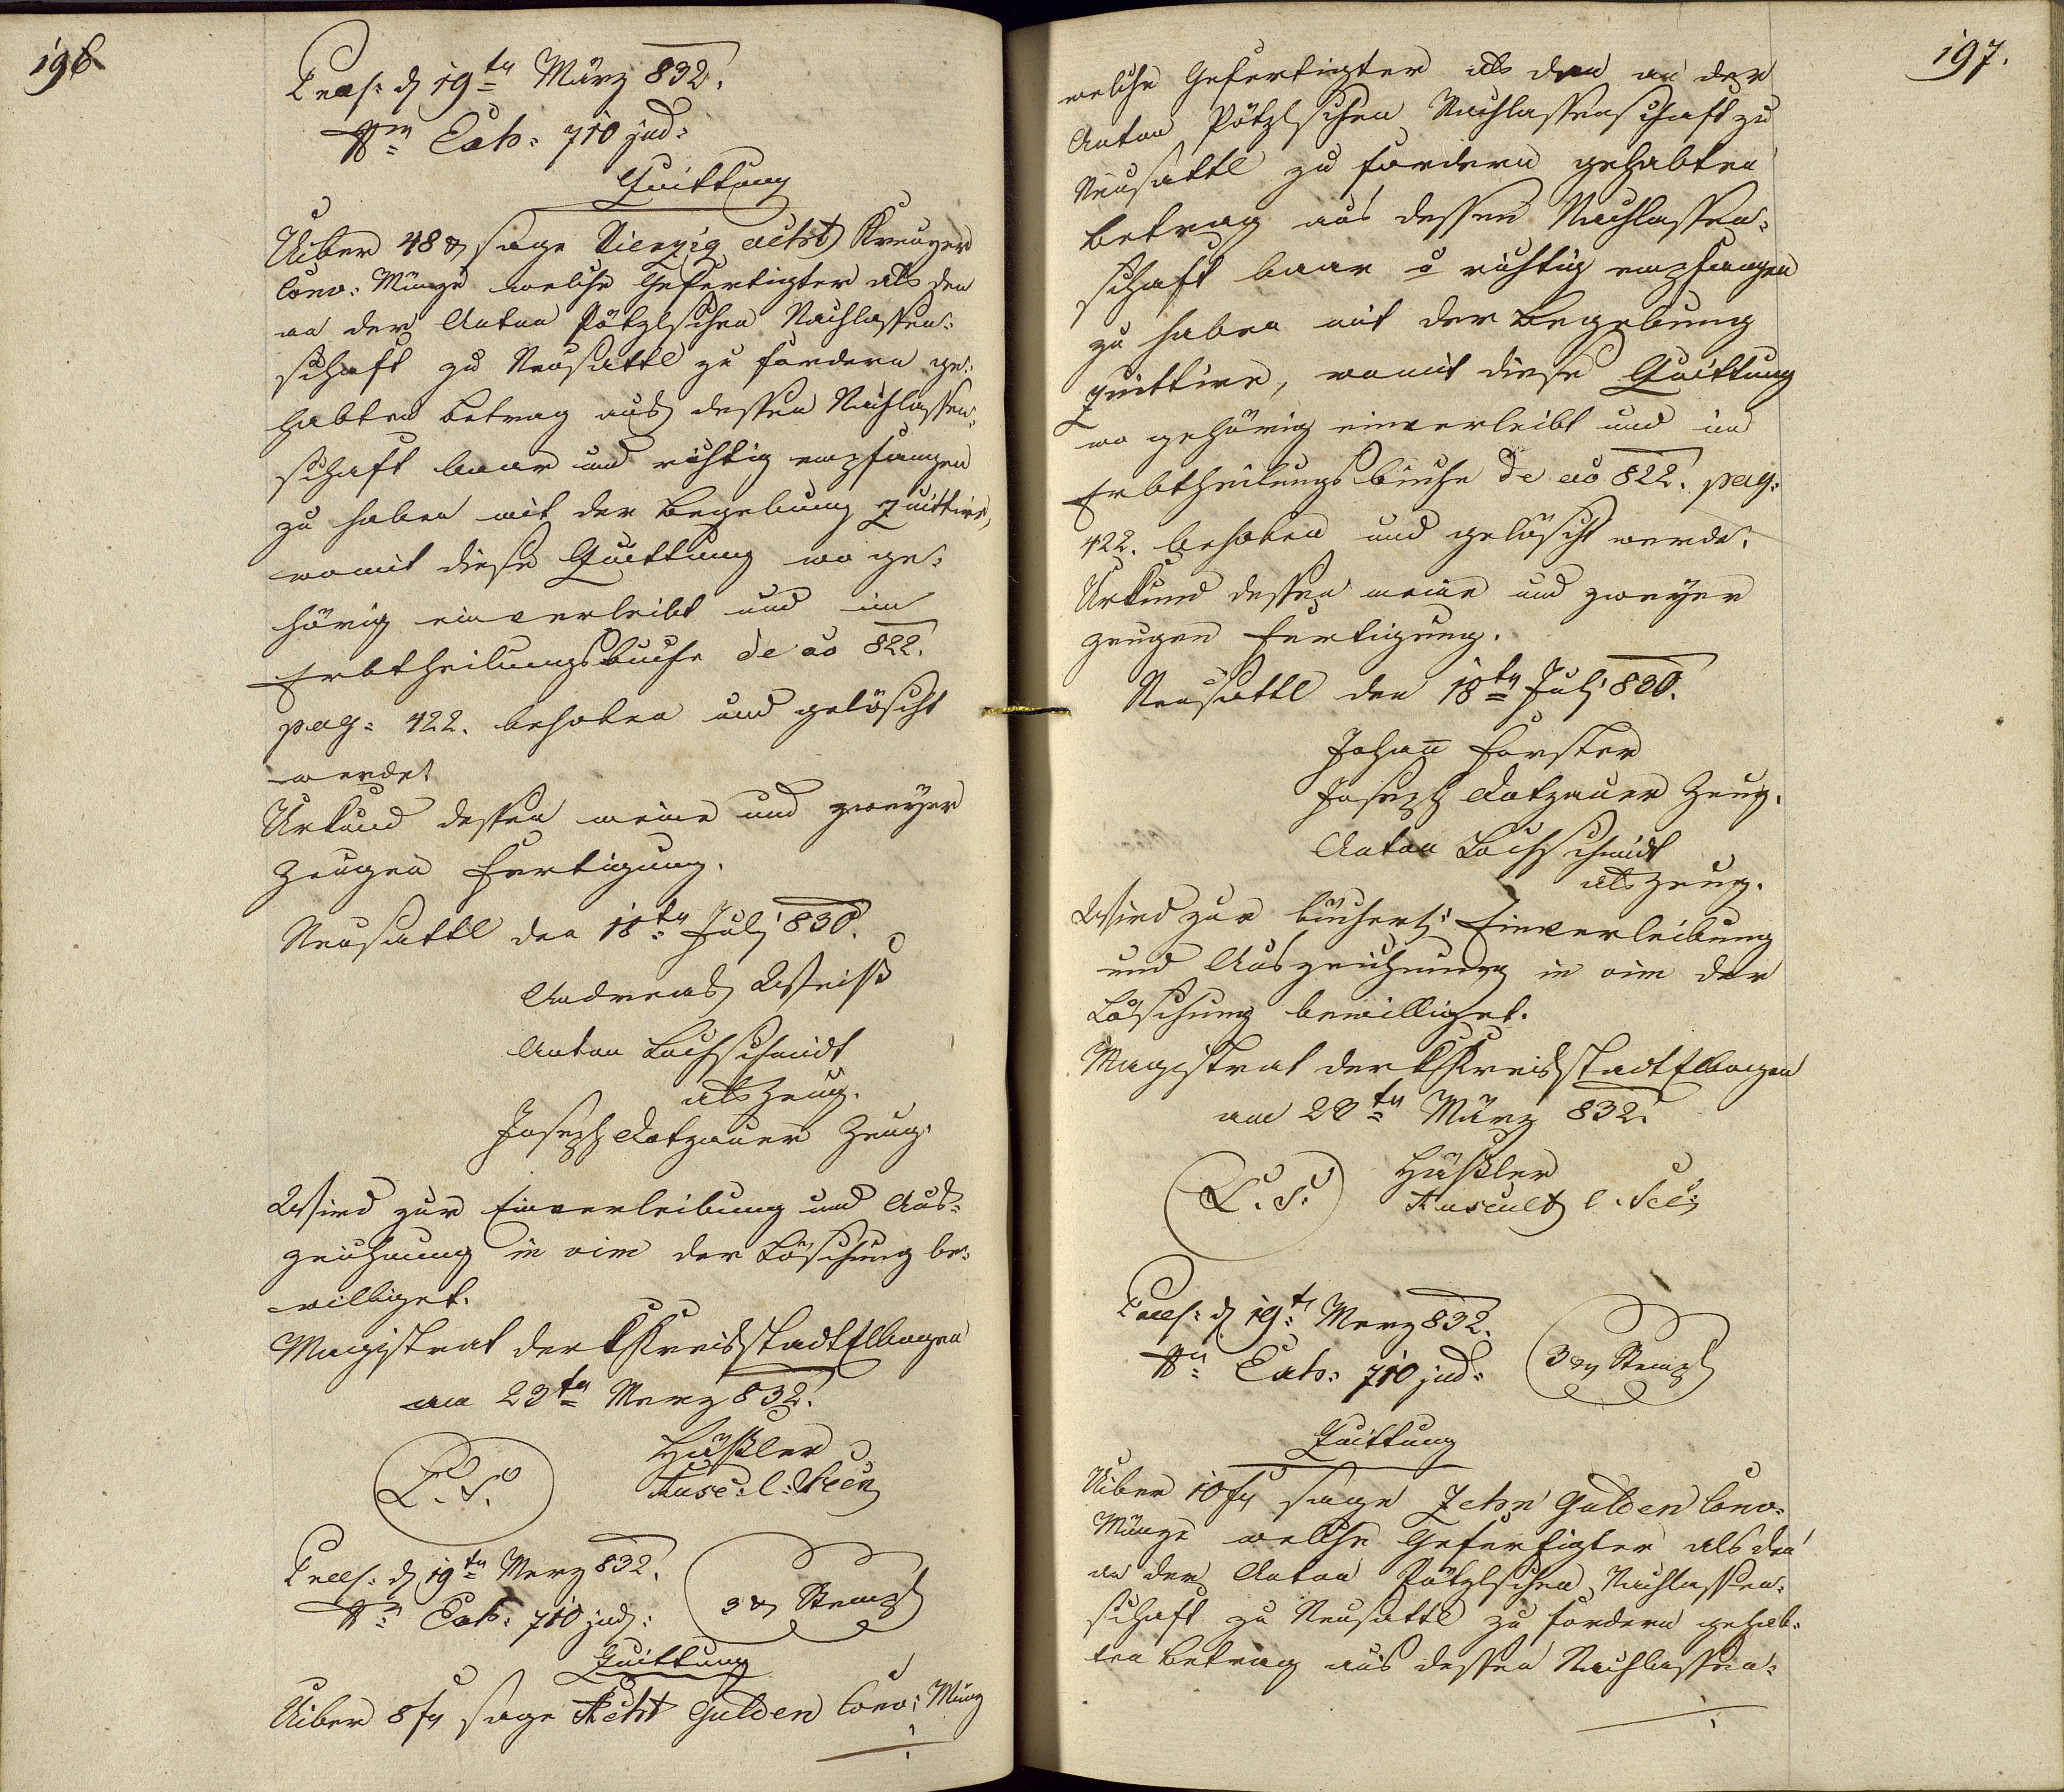 196
Præs: d 19ten März 832.
Nro Exh: 710 jud:
Quittung
Uiber 48 xr sage Vierzig acht Kreuzer
Conv: Münze welche Gefertigter als den
an der Anton Pötzlschen Nachlassen-
schaft zu Neusattl zu fordern ge-
habten Betrag aus dessen Nachlassen-
schaft baar und richtig empfangen
zu haben mit der Begebung quittire,
womit diese Quittung wo ge-
hörig einverleibt und im
Erbtheilungsbuche de ao 822.
pag: 422. behoben und gelöscht
werde.
Urkund dessen meine und zweyer
Zeugen Fertigung.
Neusattl den 18ten Juli 830.
Andreas Weiß
Anton Lochschmidt
als Zeug.
Joseph Dotzauer Zeug.
Wird zur Einverleibung und Aus-
zeichnung in vim der Löschung be-
williget.
Magistrat der K Kreisstadt Elbogen
am 23ten Merz 832.
L. S.
Häßler
Præs: d 19ten Merz 832.
Nro Exh: 710 jud:
3 xr Stempl
Quittung
Uiber 8 fr sage Acht Gulden Conv: Münz
197.
welche Gefertigter als den an der
Anton Pötzlschen Nachlassenschaft zu
Neusattl zu fordern gehabten
Betrag aus dessen Nachlassen-
schaft baar u richtig empfangen
zu haben mit der Begebung
quittire, womit diese Quittung
wo gehörig einverleibt und im
Erbtheilungsbuche de ao 822. pag:
422. behoben und gelöscht werde.
Urkund dessen meine und zweyer
Zeugen Fertigung.
Neusattl den 18ten Juli 830.
Johan Forster
Joseph Dotzauer Zeug.
Anton Lochschmidt
als Zeug.
Wird zur bücherl: Einverleibung
und Auszeichnung in vim der
Löschung bewilliget.
Magistrat der K Kreisstadt Elbogen
am 23ten März 832.
L. S.
Häßler
Præs: d 19t Merz 832.
Nro Exh: 710 jud:
3 xr Stempl
Quittung
Uiber 10 fr sage Zehn Gulden Conv-
Münze welche Gefertigter als den
an der Anton Pötzlschen Nachlassen-
schaft zu Neusattl zu fordern gehab-
ten Betrag aus dessen Nachlassen-